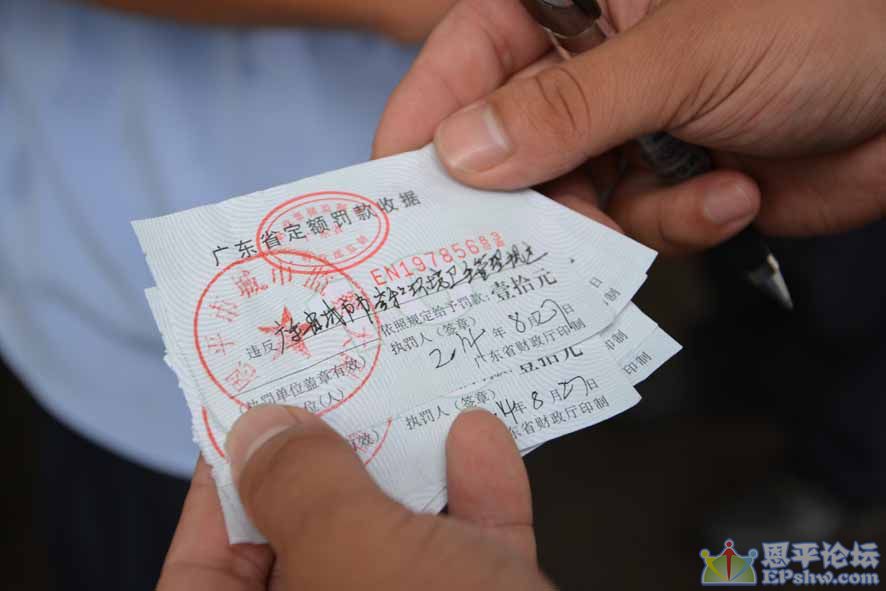 广东省定额罚款收据
EN19785683
违反广东省城市市容和环境卫生管理规定
依照规定给予罚款：壹拾元
(执罚单位盖章有效) 执罚人(签章)
位(人) 2014年8月 日
广东省财政厅印制
壹拾元
有效) 执罚人(签章)
14年8月 日
广东省财政厅印制
恩平论坛
EPshw.com